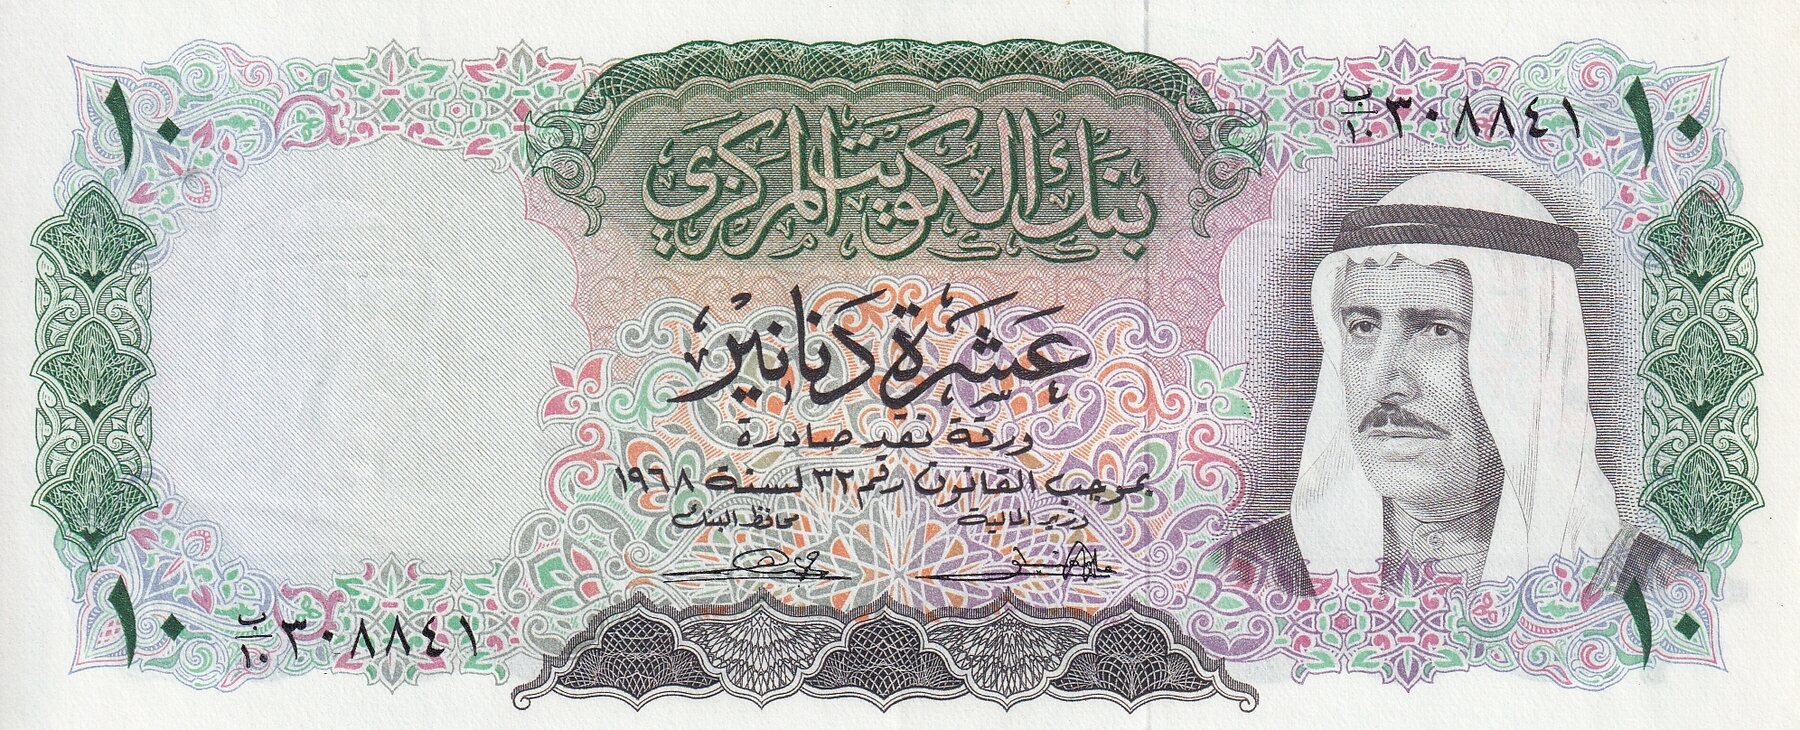 ١٠
ب/١٠ ٣٠٨٨٤١
١٠
بنك الكويت المركزي
عشرة دنانير
ورقة نقد صادرة
بموجب القانون رقم ٣٢ لسنة ١٩٦٨
وزير المالية
محافظ البنك
١٠
ب/١٠ ٣٠٨٨٤١
١٠